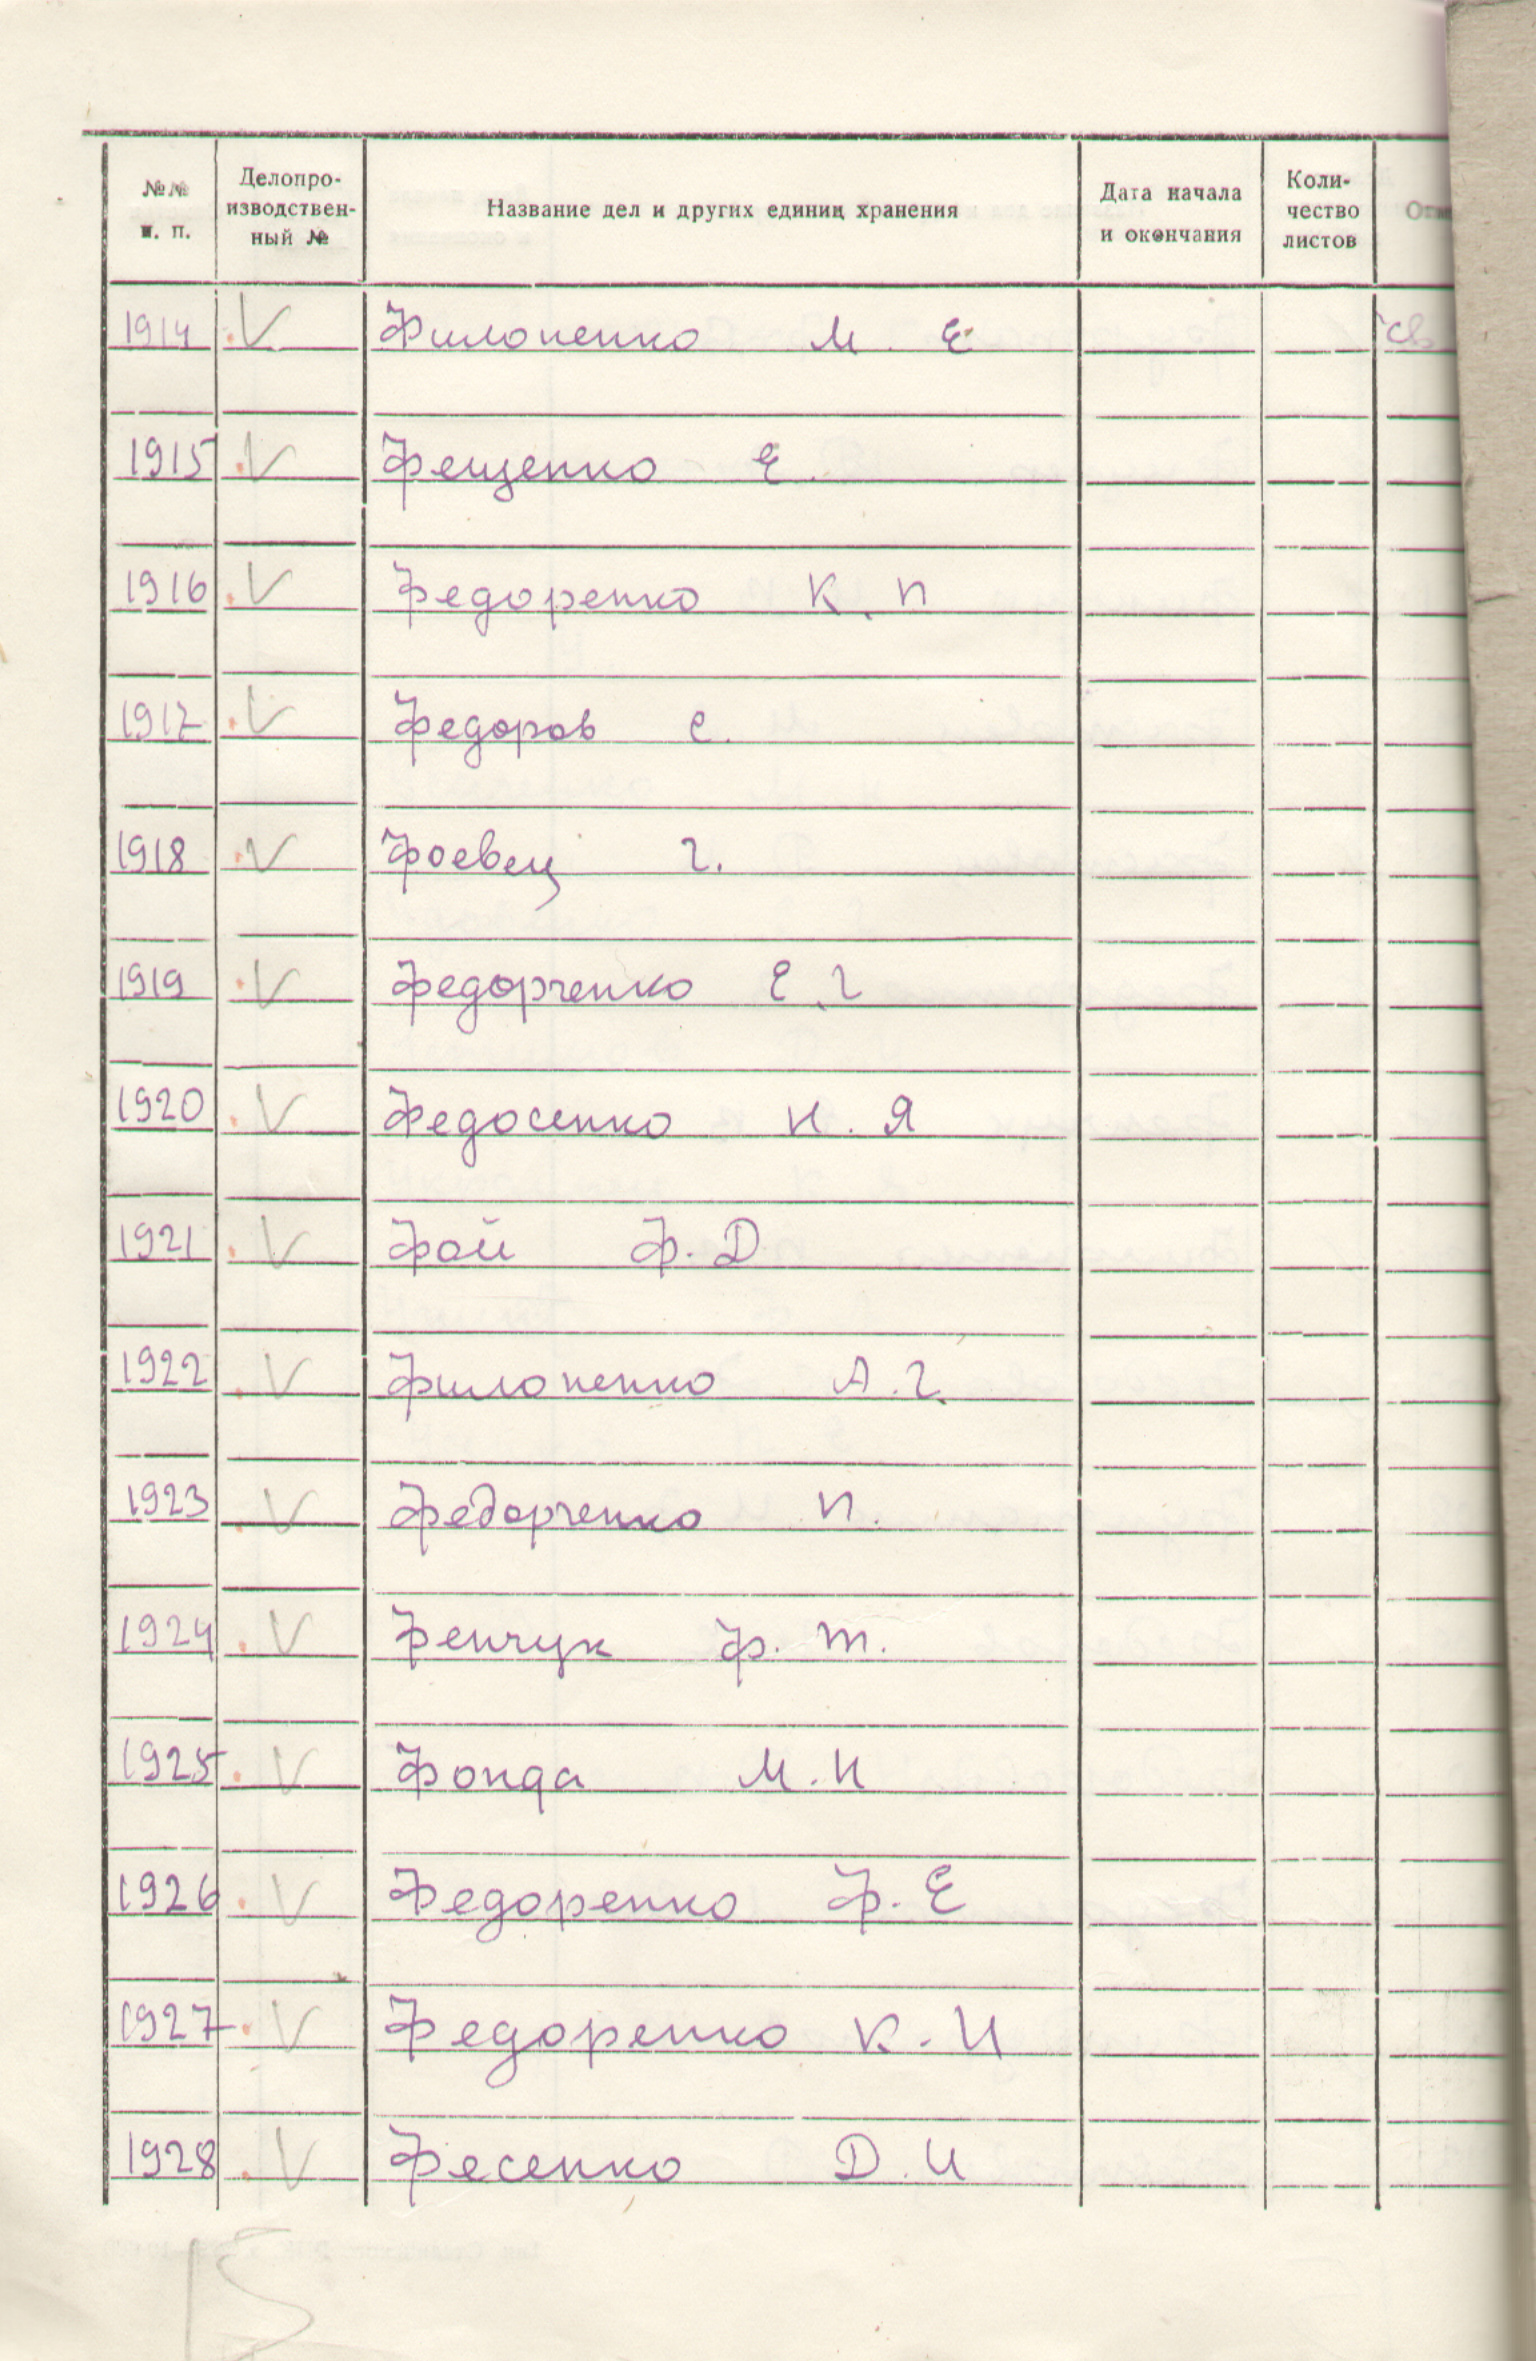 №№ п. п. Делопро-изводствен-ный № Название дел и других единиц хранения Дата начала и окончания Коли-чество листов
1914 V Филоненко М. Е
1915 V Фещенко Е.
1916 V Федоренко К. П
1917 V Федоров С.
1918 V Фоевец Г.
1919 V Федорченко Е. Г
1920 V Федосенко И. Я
1921 V Фой Ф. Д
1922 V Филоненко А. Г.
1923 V Федорченко П.
1924 V Фенчук Ф. Т.
1925 V Фонда М. И
1926 V Федоренко Ф. Е
1927 V Федоренко К. И
1928 V Фесенко Д. И
15